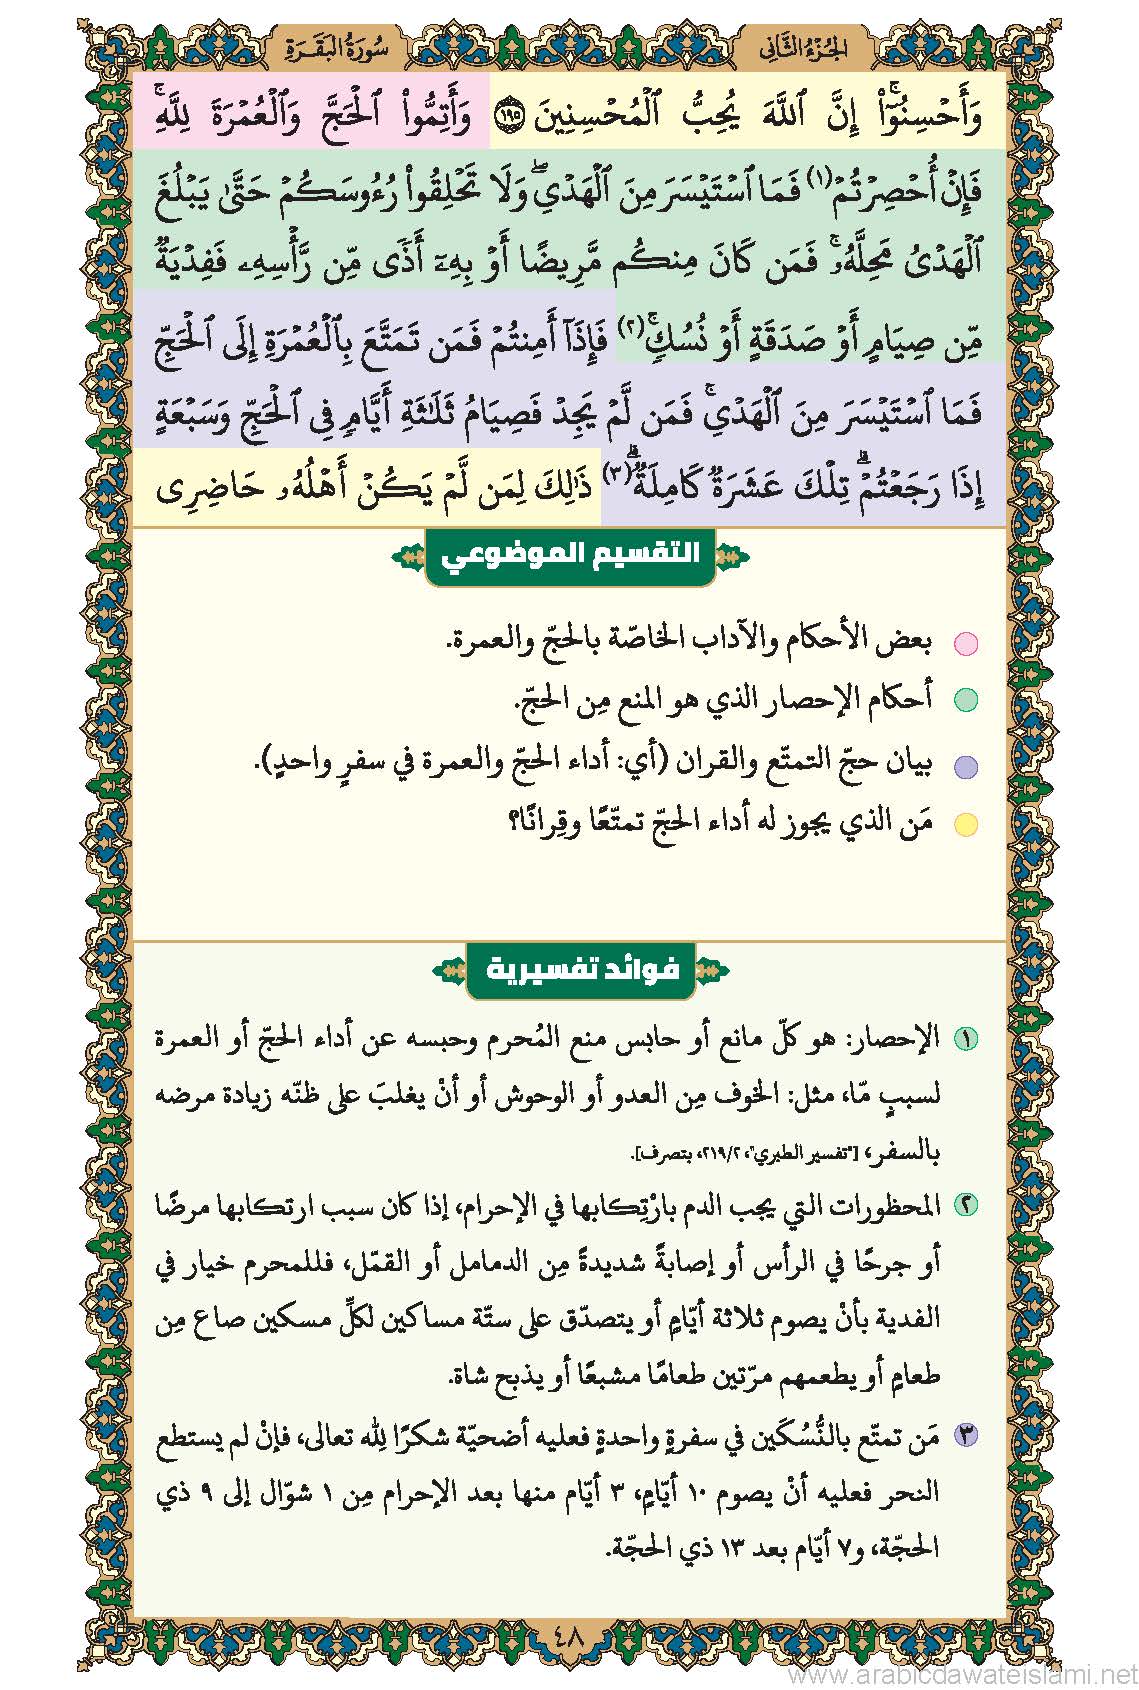 الجُزْءُ الثَّانِي
سُورَةُ البَقَرَةِ
وَأَحۡسِنُوٓاْۚ إِنَّ ٱللَّهَ يُحِبُّ ٱلۡمُحۡسِنِينَ ١٩٥ وَأَتِمُّواْ ٱلۡحَجَّ وَٱلۡعُمۡرَةَ لِلَّهِۚ
فَإِنۡ أُحۡصِرۡتُمۡ(١) فَمَا ٱسۡتَيۡسَرَ مِنَ ٱلۡهَدۡيِۖ وَلَا تَحۡلِقُواْ رُءُوسَكُمۡ حَتَّىٰ يَبۡلُغَ
ٱلۡهَدۡيُ مَحِلَّهُۥۚ فَمَن كَانَ مِنكُم مَّرِيضًا أَوۡ بِهِۦٓ أَذٗى مِّن رَّأۡسِهِۦ فَفِدۡيَةٞ
مِّن صِيَامٍ أَوۡ صَدَقَةٍ أَوۡ نُسُكٖۚ(٢) فَإِذَآ أَمِنتُمۡ فَمَن تَمَتَّعَ بِٱلۡعُمۡرَةِ إِلَى ٱلۡحَجِّ
فَمَا ٱسۡتَيۡسَرَ مِنَ ٱلۡهَدۡيِۚ فَمَن لَّمۡ يَجِدۡ فَصِيَامُ ثَلَٰثَةِ أَيَّامٖ فِي ٱلۡحَجِّ وَسَبۡعَةٍ
إِذَا رَجَعۡتُمۡۗ تِلۡكَ عَشَرَةٞ كَامِلَةٞۗ(٣) ذَٰلِكَ لِمَن لَّمۡ يَكُنۡ أَهۡلُهُۥ حَاضِرِي
التقسيم الموضوعي
بعض الأحكام والآداب الخاصّة بالحجّ والعمرة.
أحكام الإحصار الذي هو المنع مِن الحجّ.
بيان حجّ التمتّع والقران (أي: أداء الحجّ والعمرة في سفرٍ واحدٍ).
مَن الذي يجوز له أداء الحجّ تمتّعًا وقِرانًا؟
فوائد تفسيرية
١ الإحصار: هو كلّ مانع أو حابس منع المُحرم وحبسه عن أداء الحجّ أو العمرة
لسببٍ مّا، مثل: الخوف مِن العدو أو الوحوش أو أنْ يغلبَ على ظنّه زيادة مرضه
بالسفر، ["تفسير الطبري"، ٢١٩/٢، بتصرف].
٢ المحظورات التي يجب الدم بارْتِكابها في الإحرام، إذا كان سبب ارتكابها مرضًا
أو جرحًا في الرأس أو إصابةً شديدةً مِن الدمامل أو القمّل، فللمحرم خيار في
الفدية بأنْ يصوم ثلاثة أيّامٍ أو يتصدّق على ستّة مساكين لكلِّ مسكين صاع مِن
طعامٍ أو يطعمهم مرّتين طعامًا مشبعًا أو يذبح شاة.
٣ مَن تمتّع بالنُّسُكَين في سفرةٍ واحدةٍ فعليه أضحيّة شكرًا لِلّه تعالى، فإنْ لم يستطع
النحر فعليه أنْ يصوم ١٠ أيّامٍ، ٣ أيّام منها بعد الإحرام مِن ١ شوّال إلى ٩ ذي
الحجّة، و٧ أيّام بعد ١٣ ذي الحجّة.
٤٨
www.arabicdawateislami.net